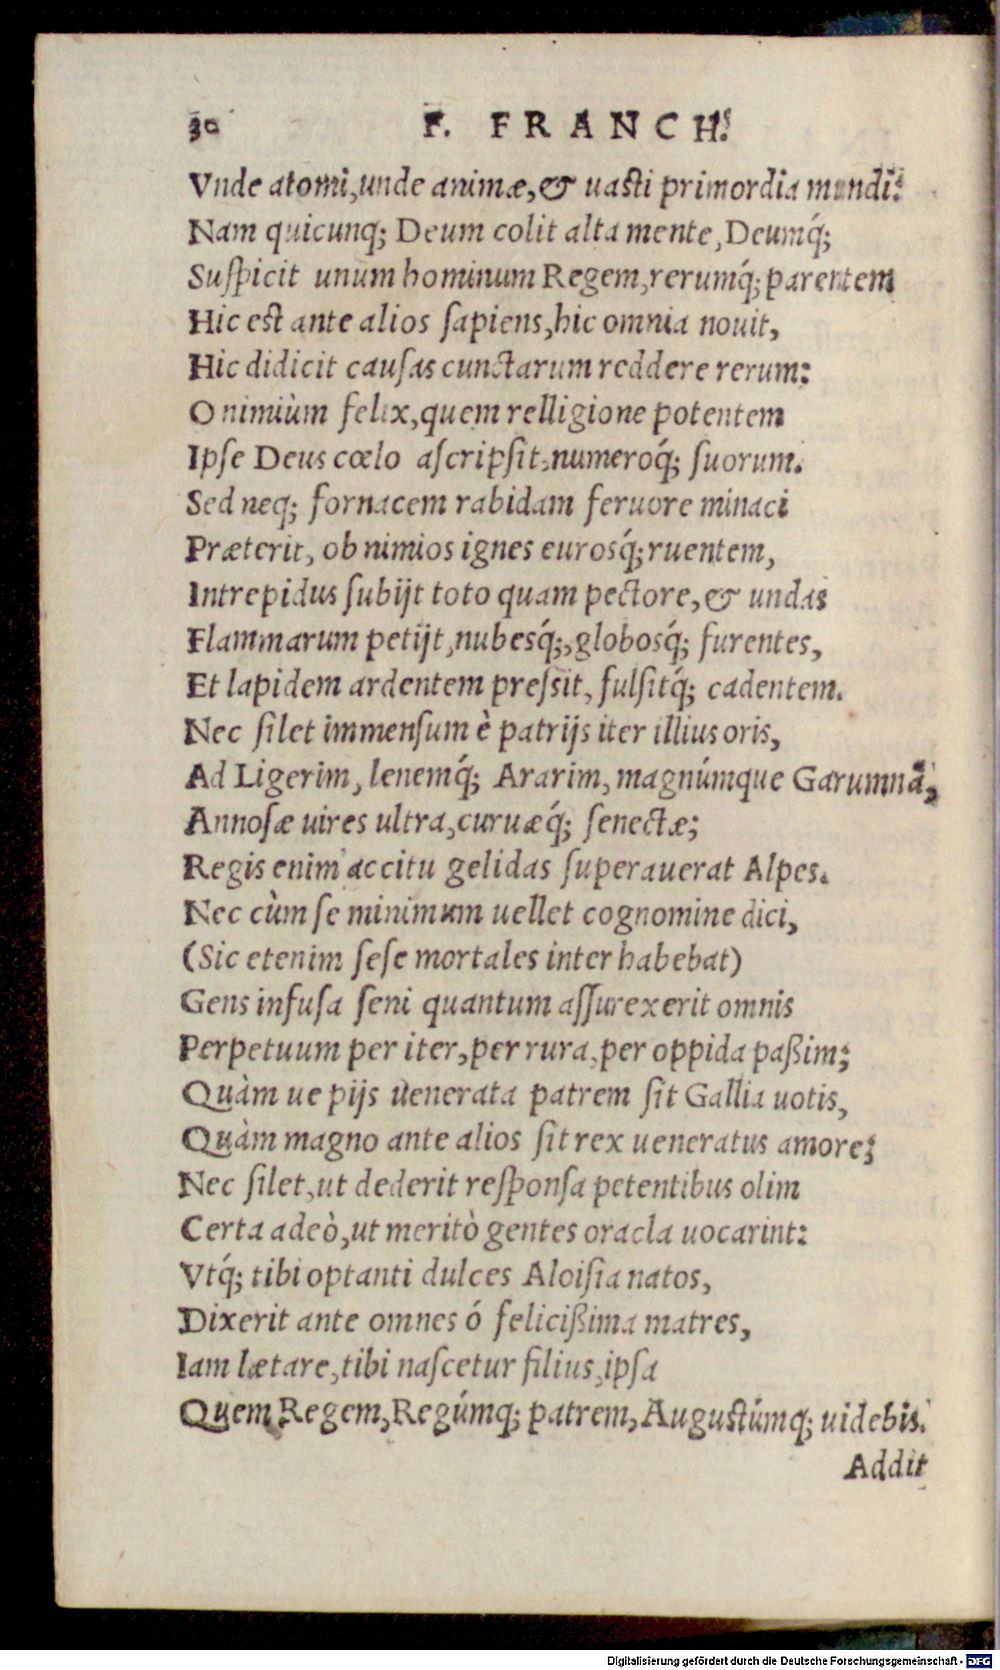 30 F. FRANCH.
Vnde atomi,unde animæ,& uasti primordia mundi:
Nam quicunq; Deum colit alta mente, Deumq́;
Suspicit unum hominum Regem,rerumq́; parentem
Hic est ante alios sapiens,hic omnia nouit,
Hic didicit causas cunctarum reddere rerum:
O nimiùm felix,quem relligione potentem
Ipse Deus cœlo ascripsit,numeroq́; suorum.
Sed neq; fornacem rabidam feruore minaci
Præterit, ob nimios ignes eurosq́; ruentem,
Intrepidus subijt toto quam pectore,& undas
Flammarum petijt,nubesq́;,globosq́; furentes,
Et lapidem ardentem pressit, fulsitq́; cadentem.
Nec silet immensum è patrijs iter illius oris,
Ad Ligerim, lenemq́; Ararim, magnúmque Garumnã,
Annosæ uires ultra,curuæq́; senectæ;
Regis enim accitu gelidas superauerat Alpes.
Nec cùm se minimum uellet cognomine dici,
(Sic etenim sese mortales inter habebat)
Gens infusa seni quantum assurexerit omnis
Perpetuum per iter,per rura,per oppida paßim;
Quàm ue pijs uenerata patrem sit Gallia uotis,
Quàm magno ante alios sit rex ueneratus amore;
Nec silet,ut dederit responsa petentibus olim
Certa adeò,ut meritò gentes oracla uocarint:
Vtq́; tibi optanti dulces Aloisia natos,
Dixerit ante omnes ó felicißima matres,
Iam lætare,tibi nascetur filius,ipsa
Quem Regem,Regúmq; patrem,Augustúmq; uidebis.
Addit
Digitalisierung gefördert durch die Deutsche Forschungsgemeinschaft - DFG